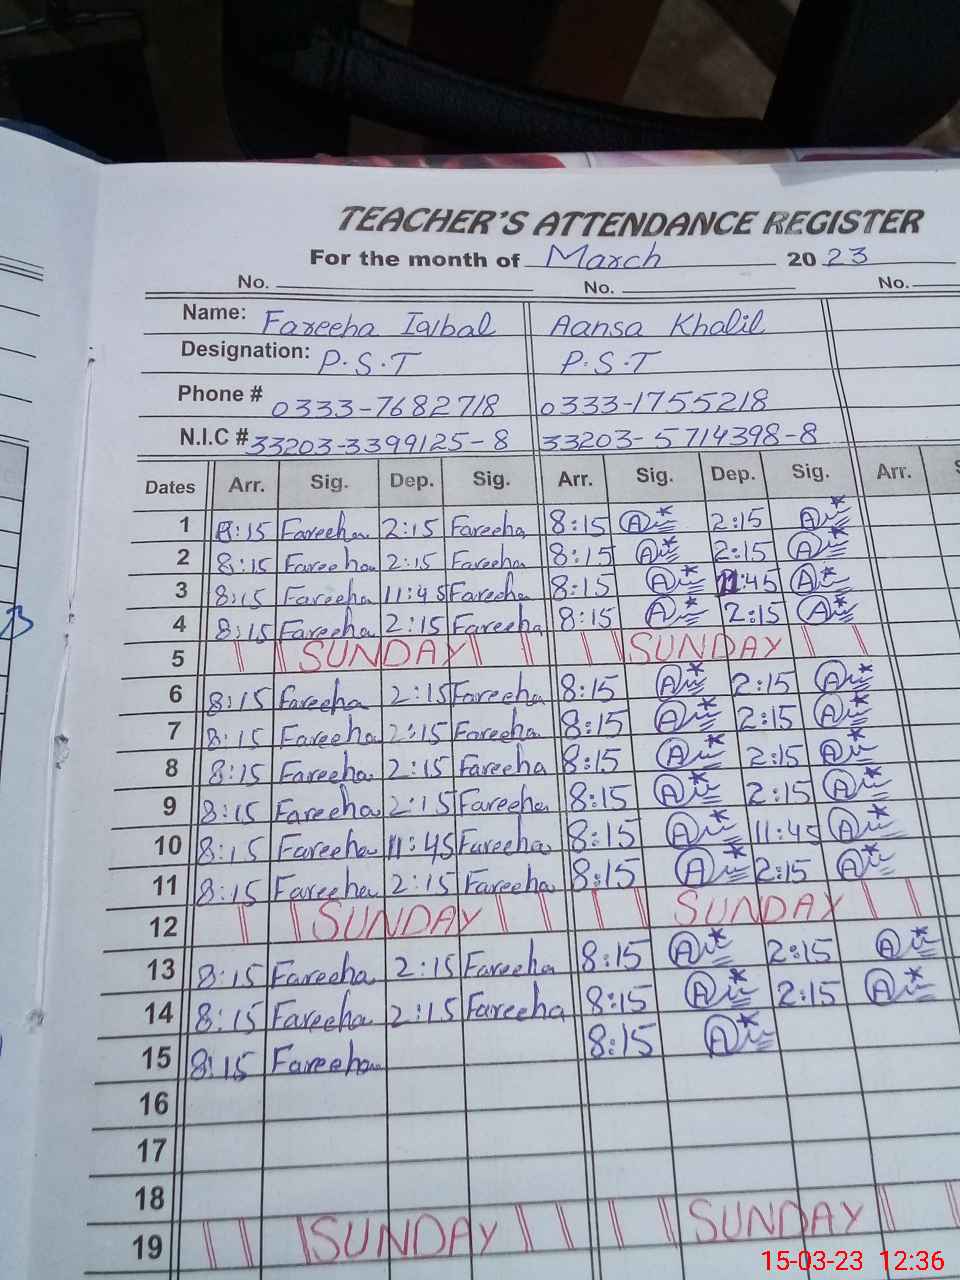 TEACHER'S ATTENDANCE REGISTER
For the month of March 2023
No. No. No.
Name: Fareeha Iqbal Aansa Khalil
Designation: P.S.T P.S.T
Phone # 0333-7682718 0333-1755218
N.I.C # 33203-3399125-8 33203-5714398-8
Dates Arr. Sig. Dep. Sig. Arr. Sig. Dep. Sig. Arr. S
1 8:15 Fareeha 2:15 Fareeha 8:15 2:15
2 8:15 Fareeha 2:15 Fareeha 8:15 2:15
3 8:15 Fareeha 11:45 Fareeha 8:15 11:45
4 8:15 Fareeha 2:15 Fareeha 8:15 2:15
5 SUNDAY SUNDAY
6 8:15 Fareeha 2:15 Fareeha 8:15 2:15
7 8:15 Fareeha 2:15 Fareeha 8:15 2:15
8 8:15 Fareeha 2:15 Fareeha 8:15 2:15
9 8:15 Fareeha 2:15 Fareeha 8:15 2:15
10 8:15 Fareeha 11:45 Fareeha 8:15 11:45
11 8:15 Fareeha 2:15 Fareeha 8:15 2:15
12 SUNDAY SUNDAY
13 8:15 Fareeha 2:15 Fareeha 8:15 2:15
14 8:15 Fareeha 2:15 Fareeha 8:15 2:15
15 8:15 Fareeha 8:15
16
17
18
19 SUNDAY SUNDAY
15-03-23 12:36